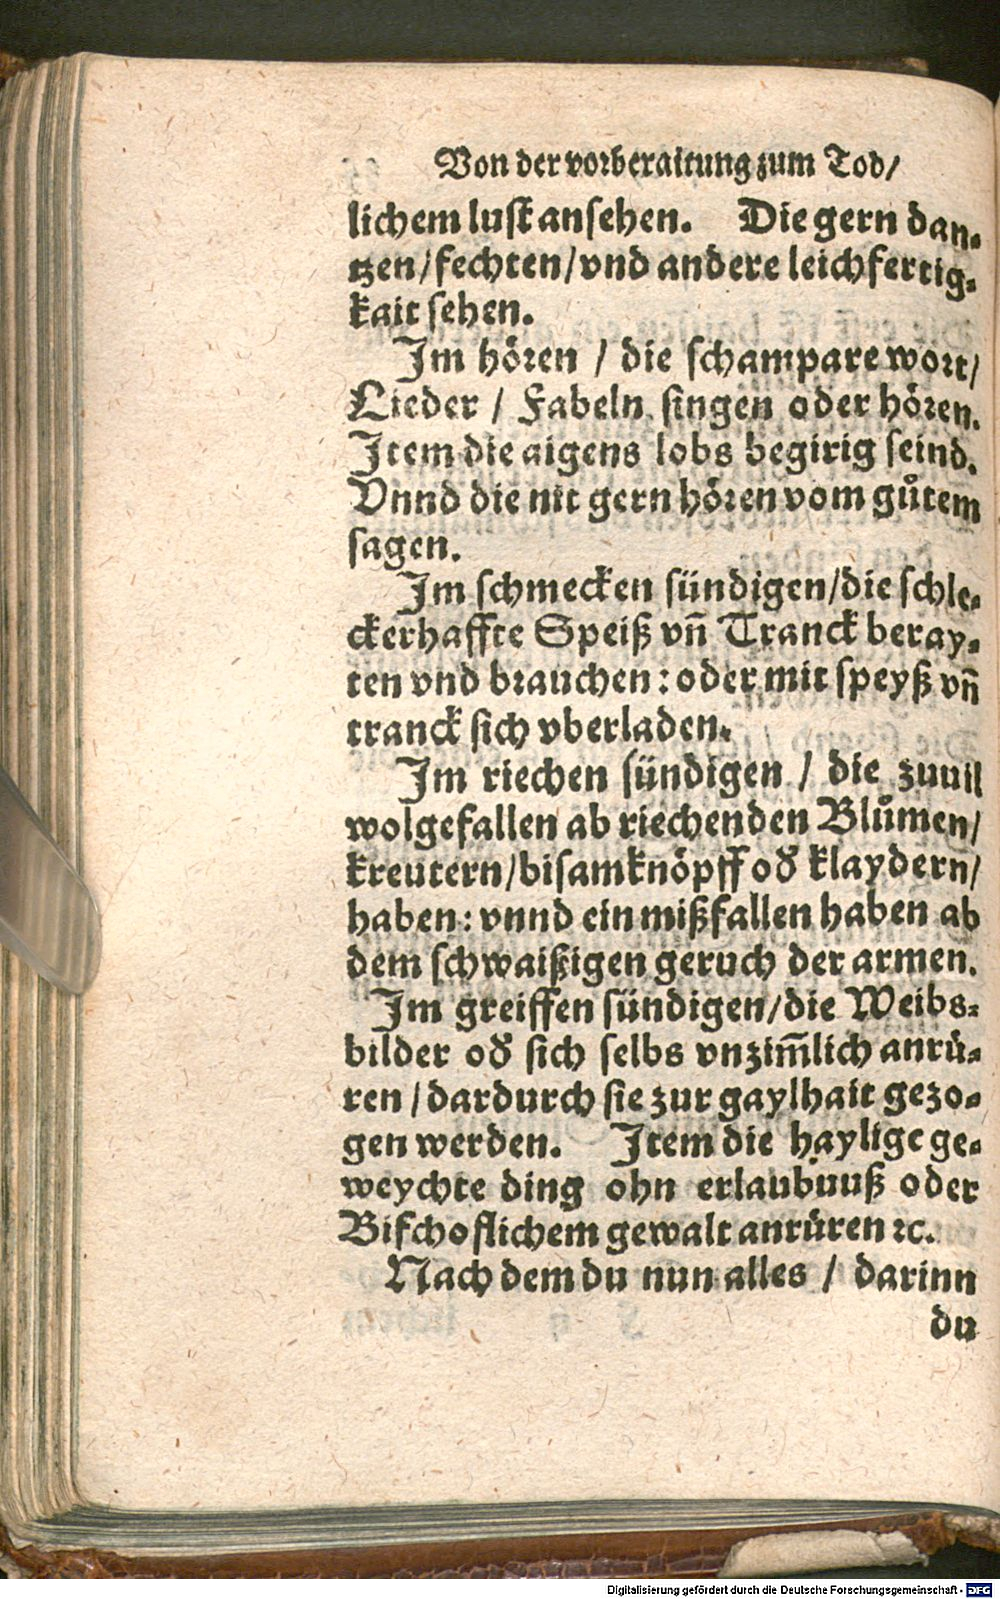 Von der vorberaitung zum Tod/
lichem lust ansehen. Die gern dan-
tzen/fechten/vnd andere leichfertig-
kait sehen.
Im hören / die schampare wort/
Lieder / Fabeln singen oder hören.
Item die aigens lobs begirig seind.
Vnnd die nit gern hören vom gůtem
sagen.
Im schmecken sündigen/die schle-
ckerhaffte Speiß vñ Tranck beray-
ten vnd brauchen: oder mit speyß vñ
tranck sich vberladen.
Im riechen sündigen / die zuuil
wolgefallen ab riechenden Blůmen/
kreutern/bisamknöpff oď klaydern/
haben: vnnd ein mißfallen haben ab
dem schwaißigen geruch der armen.
Im greiffen sündigen/die Weibs-
bilder oď sich selbs vnzim̃lich anrü-
ren / dardurch sie zur gaylhait gezo-
gen werden. Item die haylige ge-
weychte ding ohn erlaubnuß oder
Bischoflichem gewalt anrüren ꝛc.
Nach dem du nun alles / darinn
du
Digitalisierung gefördert durch die Deutsche Forschungsgemeinschaft - DFG